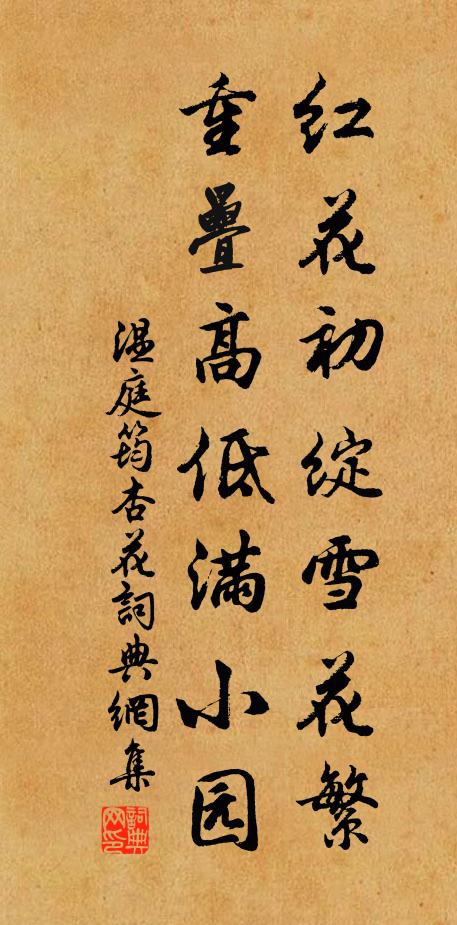 红花初绽雪花繁
重疊高低满小园
温庭筠杏花詞典網集
詞典网印